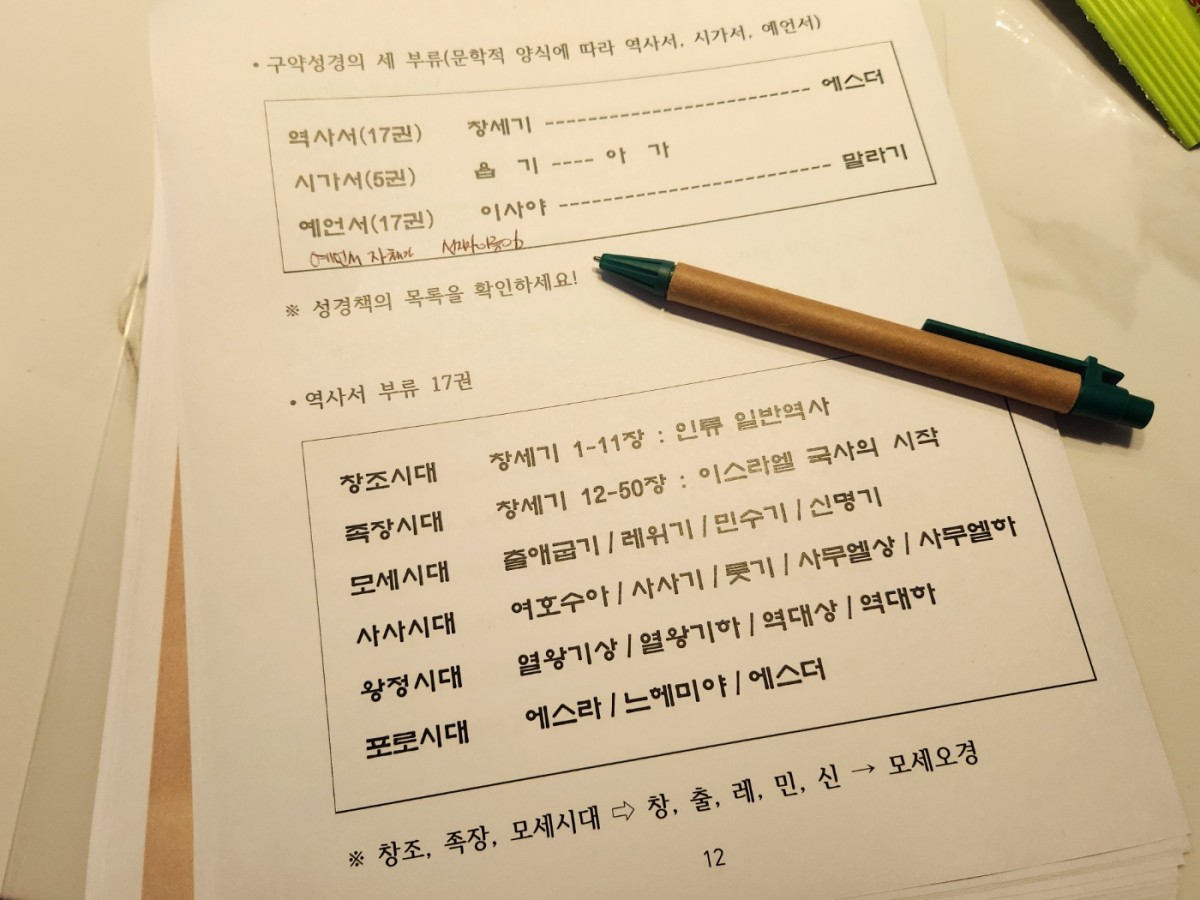 • 구약성경의 세 부류(문학적 양식에 따라 역사서, 시가서, 예언서)
역사서(17권) 창세기 ------------------------- 에스더
시가서(5권) 욥 기 ---- 아 가
예언서(17권) 이사야 ------------------------- 말라기
예언서 자체가
※ 성경책의 목록을 확인하세요!
• 역사서 부류 17권
창조시대 창세기 1-11장 : 인류 일반역사
족장시대 창세기 12-50장 : 이스라엘 국사의 시작
모세시대 출애굽기 / 레위기 / 민수기 / 신명기
사사시대 여호수아 / 사사기 / 룻기 / 사무엘상 / 사무엘하
왕정시대 열왕기상 / 열왕기하 / 역대상 / 역대하
포로시대 에스라 / 느헤미야 / 에스더
※ 창조, 족장, 모세시대 ⇨ 창, 출, 레, 민, 신 → 모세오경
12